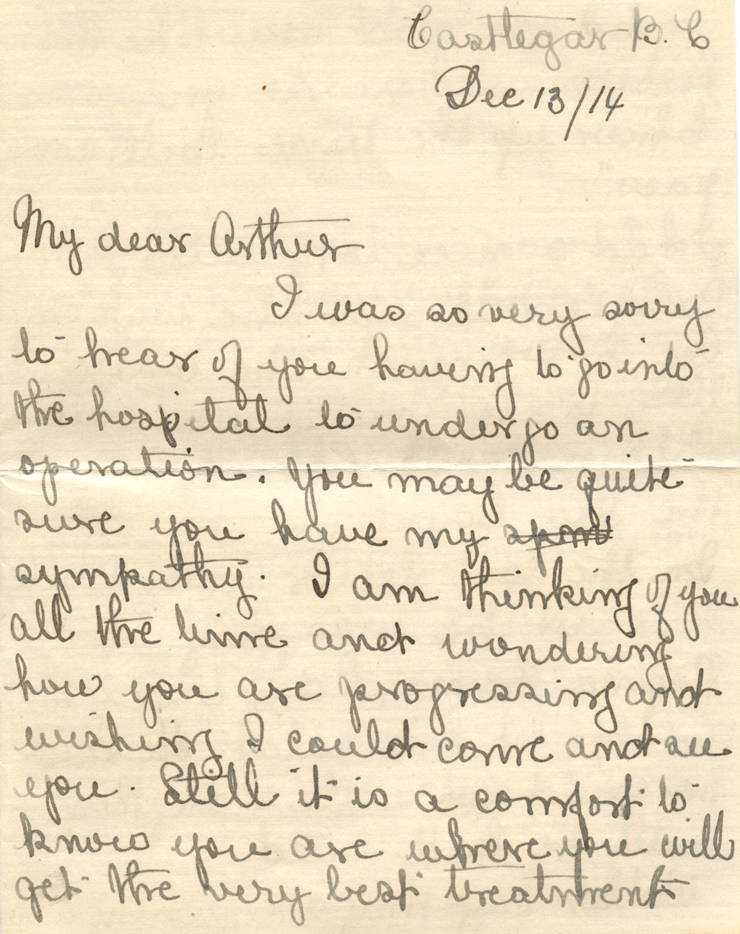 Castlegar B.C
Dec 13/14
My dear Arthur
I was so very sorry
to hear of you having to go into
the hospital to undergo an
operation. You may be quite
sure you have my
sympathy. I am thinking of you
all the time and wondering
how you are progressing and
wishing I could come and see
you. Still it is a comfort to
know you are where you will
get the very best treatment